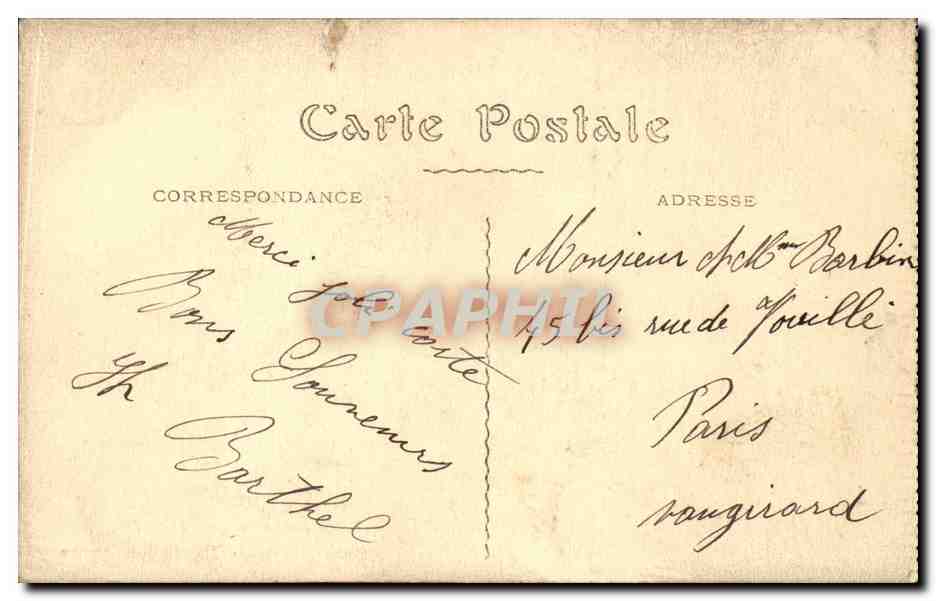 Carte Postale
CORRESPONDANCE
Merci jolie carte
Bons Souvenirs
Th Barthel
ADRESSE
Monsieur et Mme Barbin
45 bis rue de Vouillé
Paris
vaugirard
CPAPHIL